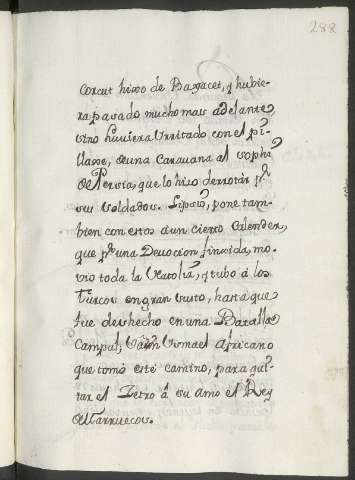 288
Corcut hixo de Bayacet, y hubie-
ra pasado mucho mas adelante,
sino huviera irritado con el pi-
llage, de una Caravana al sophi
de Persia, que lo hizo derrotar pr
sus soldados. Lipsio, pone tam-
bien con estos à un cierto Calender,
que pr una Devocion finxida, mo-
vio toda la Natolia, y tubo à los
Turcos en gran susto, hasta que
fue deshecho en una Batalla
Campal; Ismael Africano
que tomò este camino, para qui-
tar el Zetro â su amo el Rey
de Marruecos.